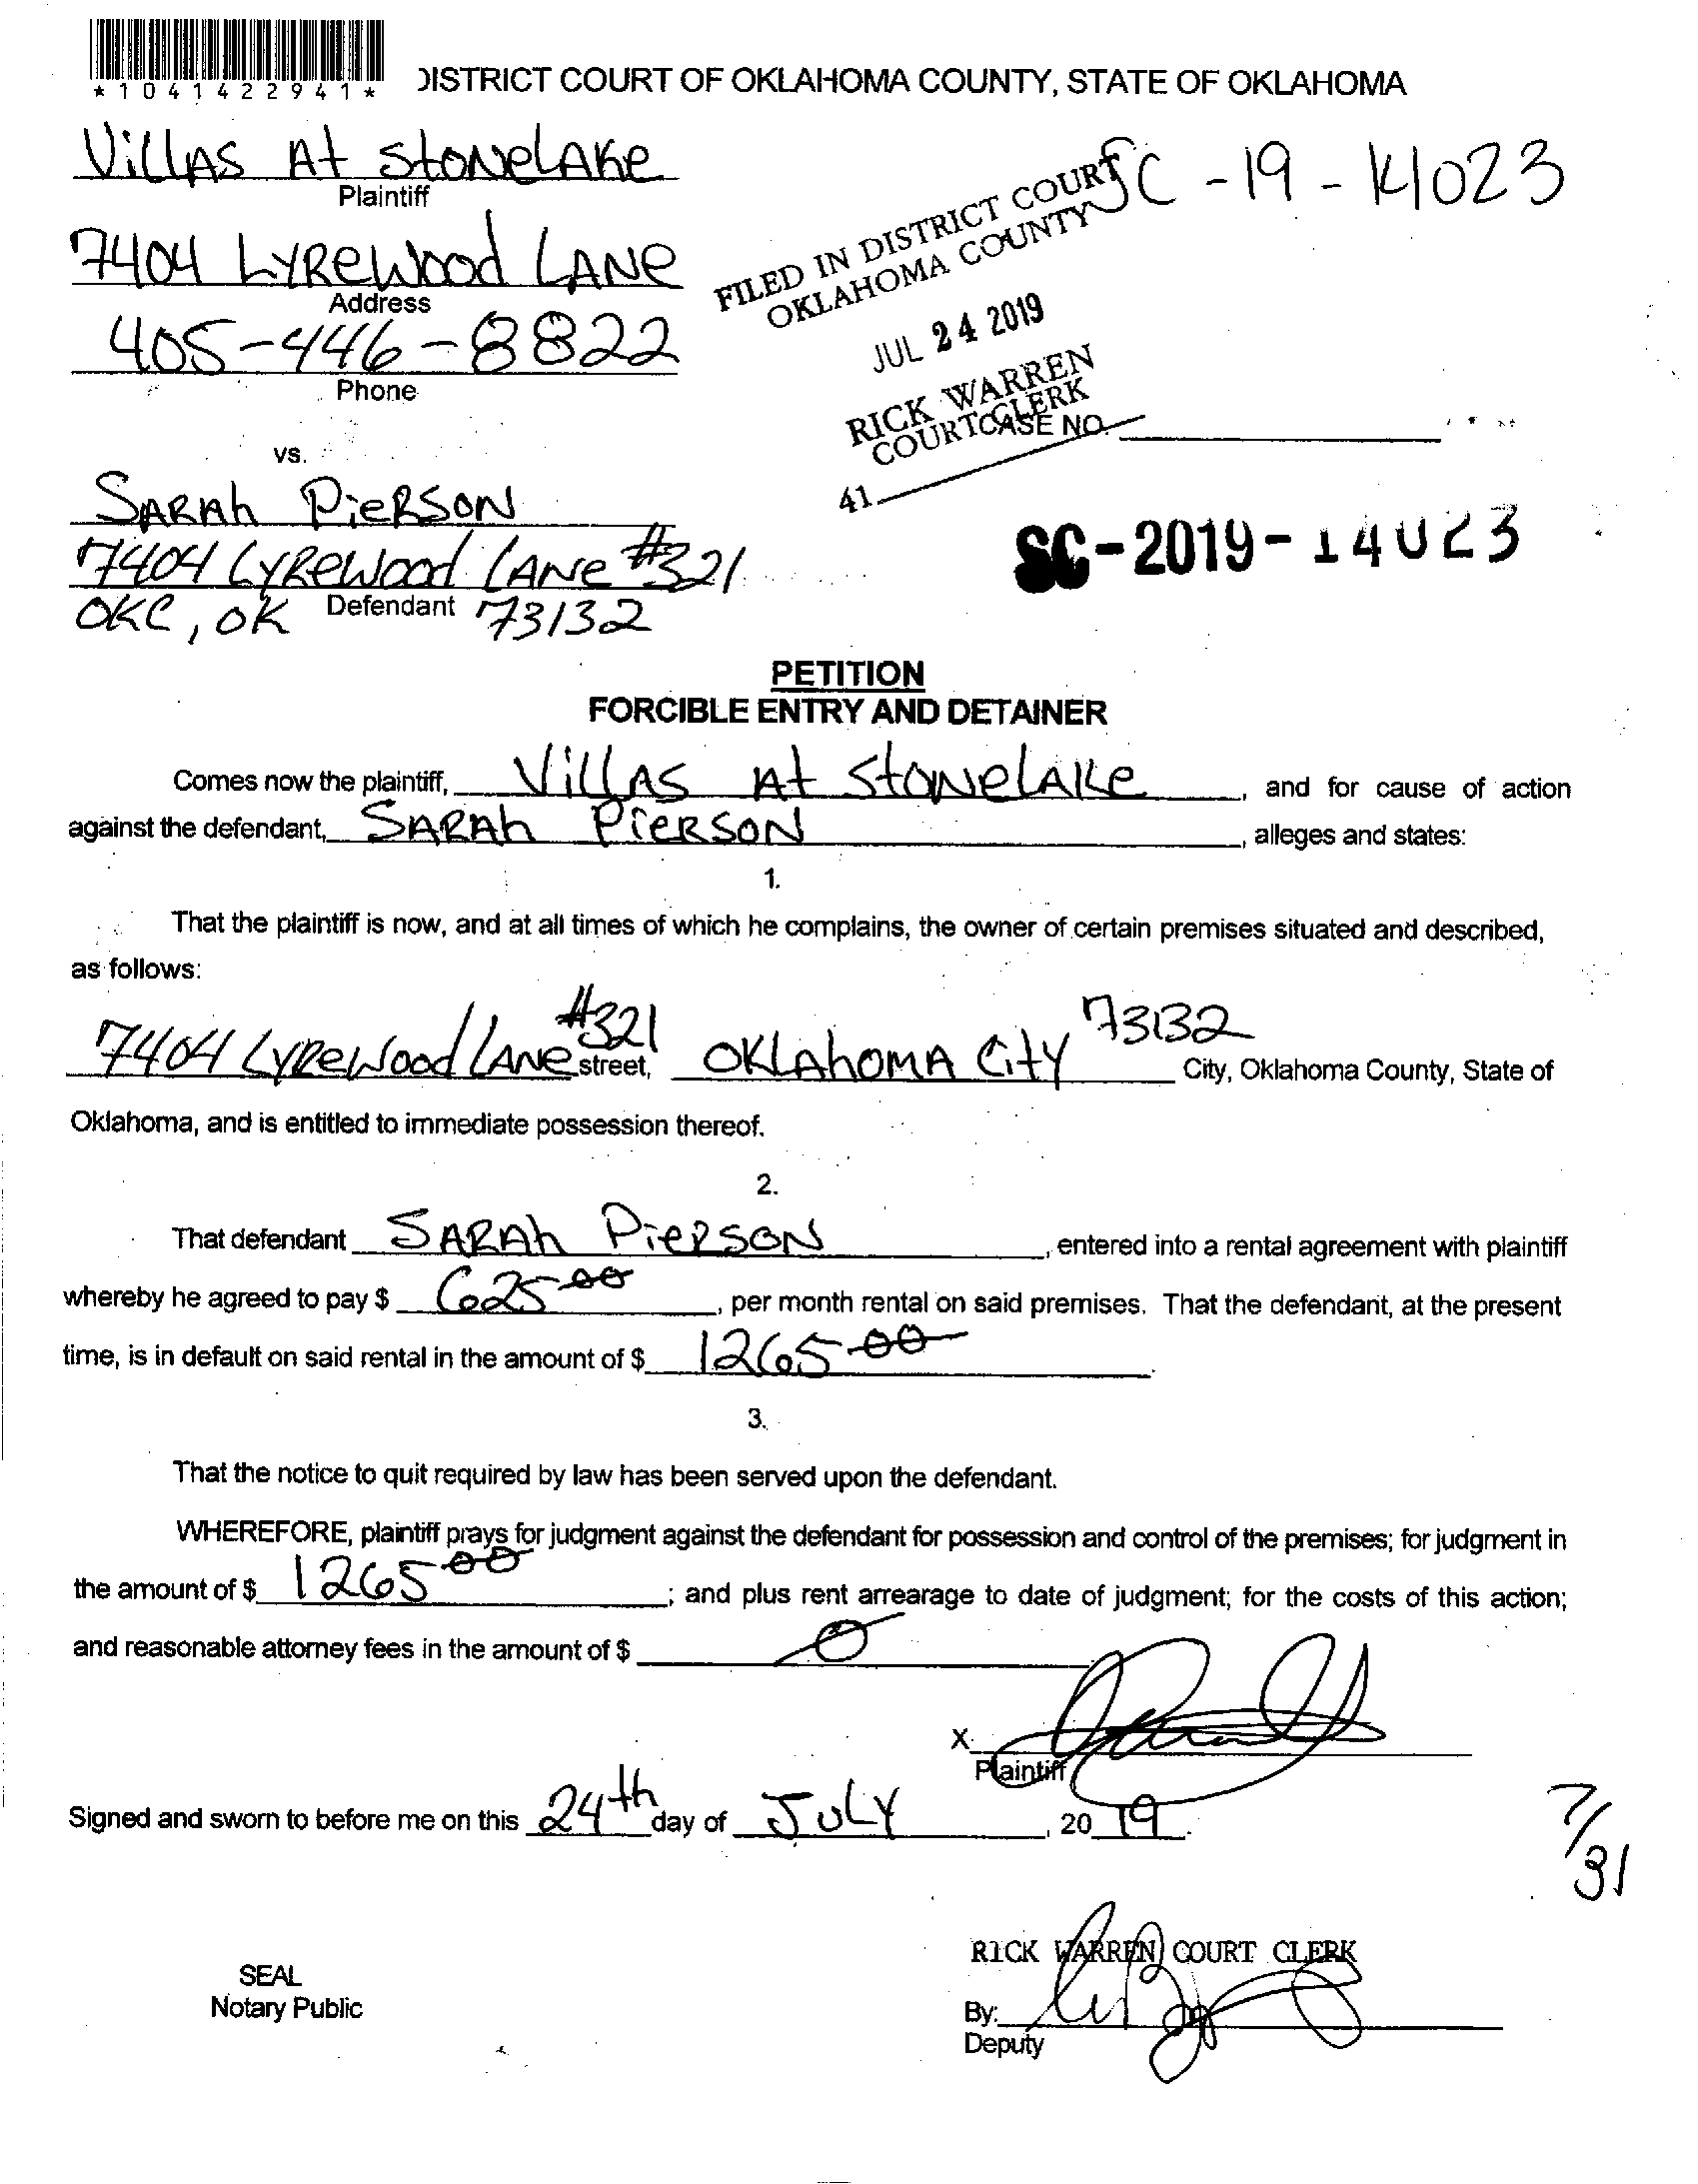 *1041422941*
DISTRICT COURT OF OKLAHOMA COUNTY, STATE OF OKLAHOMA
Villas At Stonelake
Plaintiff
SC-19-14023
7404 Lyrewood Lane
Address
FILED IN DISTRICT COURT
OKLAHOMA COUNTY
405-446-8822
Phone
JUL 24 2019
RICK WARREN
COURT CLERK
CASE NO.
41
vs.
Sarah Pierson
7404 Lyrewood Lane #321
SC-2019-14023
OKC, OK Defendant 73132
PETITION
FORCIBLE ENTRY AND DETAINER
Comes now the plaintiff, Villas At Stonelake, and for cause of action
against the defendant, Sarah Pierson, alleges and states:
1.
That the plaintiff is now, and at all times of which he complains, the owner of certain premises situated and described,
as follows:
7404 Lyrewood Lane #321 street, Oklahoma City 73132 City, Oklahoma County, State of
Oklahoma, and is entitled to immediate possession thereof.
2.
That defendant Sarah Pierson, entered into a rental agreement with plaintiff
whereby he agreed to pay $ 625.00, per month rental on said premises. That the defendant, at the present
time, is in default on said rental in the amount of $ 1265.00.
3.
That the notice to quit required by law has been served upon the defendant.
WHEREFORE, plaintiff prays for judgment against the defendant for possession and control of the premises; for judgment in
the amount of $ 1265.00; and plus rent arrearage to date of judgment; for the costs of this action;
and reasonable attorney fees in the amount of $ 0
X
Plaintiff
Signed and sworn to before me on this 24th day of July, 2019.
7/31
RICK WARREN COURT CLERK
SEAL
Notary Public
By:
Deputy